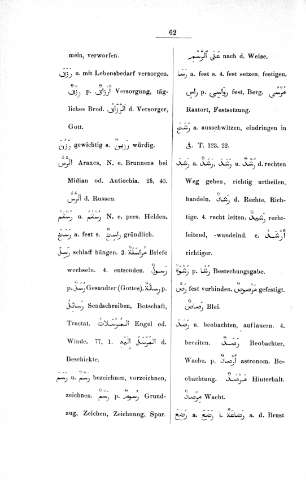 62
mein, verworfen.
رزق a. mit Lebensbedarf versorgen.
رزق p. أرزاق Versorgung, täg-
liches Brod. الرزاق d. Versorger,
Gott.
رزين gewichtig a. رزين würdig.
الرس Araxes, N. e. Brunnens bei
Midian od. Antiochia. 25, 40.
d. Russen
رستم u. رستم N. e. pers. Helden.
رسخ a. fest s. راسخ gründlich.
رسل schlaff hängen. 3 مراسلة Briefe
wechseln. 4. entsenden. رسول
p. رسل Gesandter (Gottes). رسالة p.
رسائل Sendschreiben, Botschaft,
Tractat. المرسلات Engel od.
Winde. 77, 1. المرسل اليه d.
Beschickte.
رسم u. bezeichnen, vorzeichnen,
zeichnen. رسم p. رسوم Grund-
zug, Zeichen, Zeichnung, Spur.
على الرسم nach d. Weise.
رسا u. fest s. 4 fest setzen, festigen.
راس p. رواسي fest, Berg. مرسى
Rastort, Festsetzung.
رشح a. ausschwitzen, eindringen in
A. T. 123, 22.
رشد u. رشد, رشد a. رشد d. rechten
Weg gehen, richtig urtheilen,
handeln. رشد d. Rechte, Rich-
tige. 4. recht leiten. رشيد recht-
leitend, -wandelnd. c. أرشد
richtiger.
رشوة p. رشا Bestechungsgabe.
رص fest verbinden. مرصوص gefestigt.
رصاص Blei.
رصد u. beobachten, auflauern. 4.
bereiten. رصد Beobachter,
Wache. p. أرصاد astronom. Be-
obachtung. مرصد Hinterhalt.
مرصاد Wacht.
رضع a. رضع u. رضاعة i. رضع a. d. Brust